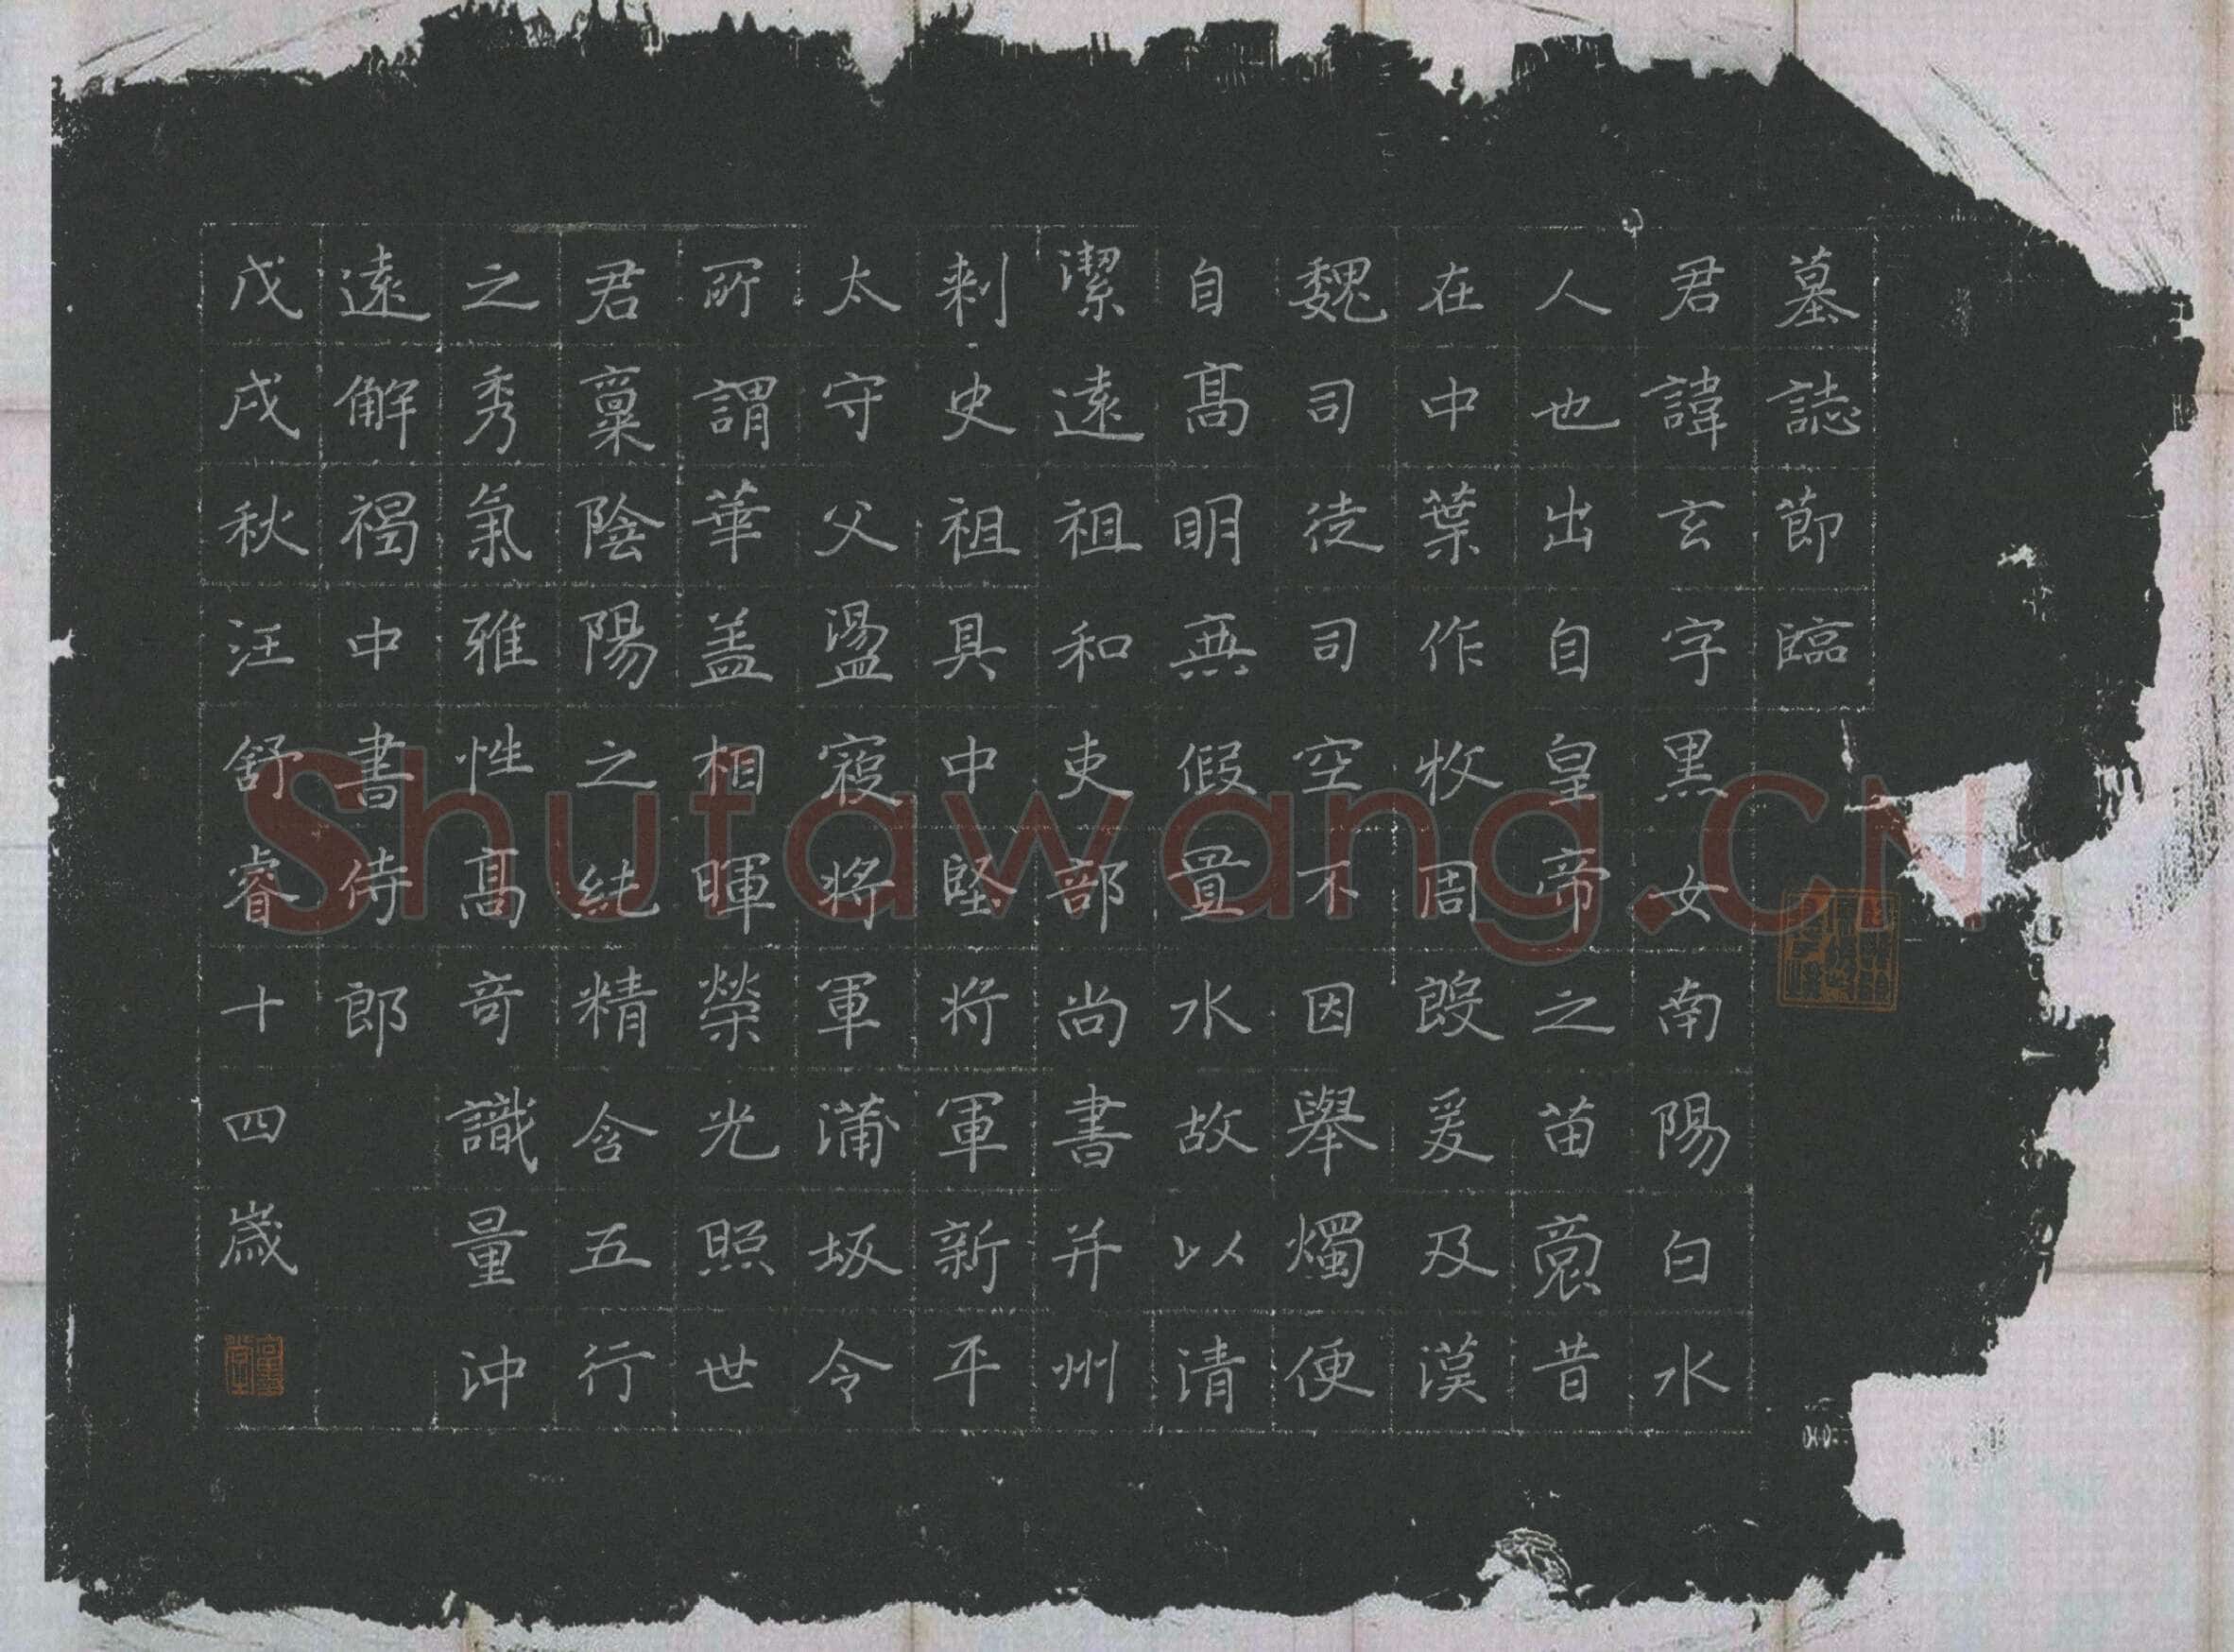 墓誌節臨
君諱玄字黑女南陽白水
人也出自皇帝之苗裔昔
在中葉作牧周殷爰及漢
魏司徒司空不因舉燭便
自高明無假置水故以清
潔遠祖和吏部尚書并州
刺史祖具中堅將軍新平
太守父盪寇將軍蒲坂令
所謂華蓋相暉榮光照世
君稟陰陽之純精含五行
之秀氣雅性高奇識量沖
遠解褐中書侍郎
戊戌秋汪舒睿十四歲
Shufawang.CN